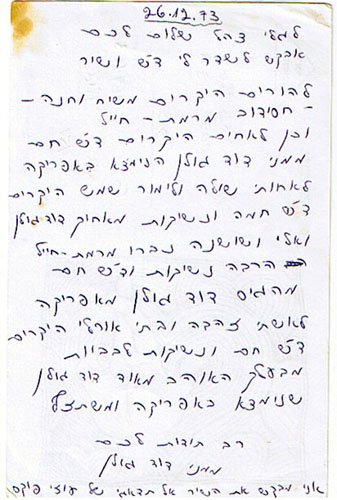 26.12.73
לגלי צהל שלום לכם
אבקש לשדר לי ד״ש ושיר
להורים היקרים משיח וחנה -
- חסידוב מרמת - חייל
וכן לאחים היקרים ד״ש חם
ממני דוד גולן הנימצא באפריקה
לאחותי שולה ולימור שמש היקרים
ד״ש חמה ונשיקות מאחיך דוד גולן
ואלי ושושנה נברו מרמת-חייל
הרבה נשיקות וד״ש חם
מהגיס דוד גולן מאפריקה
לאשתי זהבה ובתי אורלי היקרים
ד״ש חם ונשיקות לבביות
מבעלך האוהב מאוד דוד גולן
שנימצא באפריקה ומשתזף
רב תודות לכם
ממני דוד גולן
אני מבקש את השיר אל תדאגי של עוזי פוקס